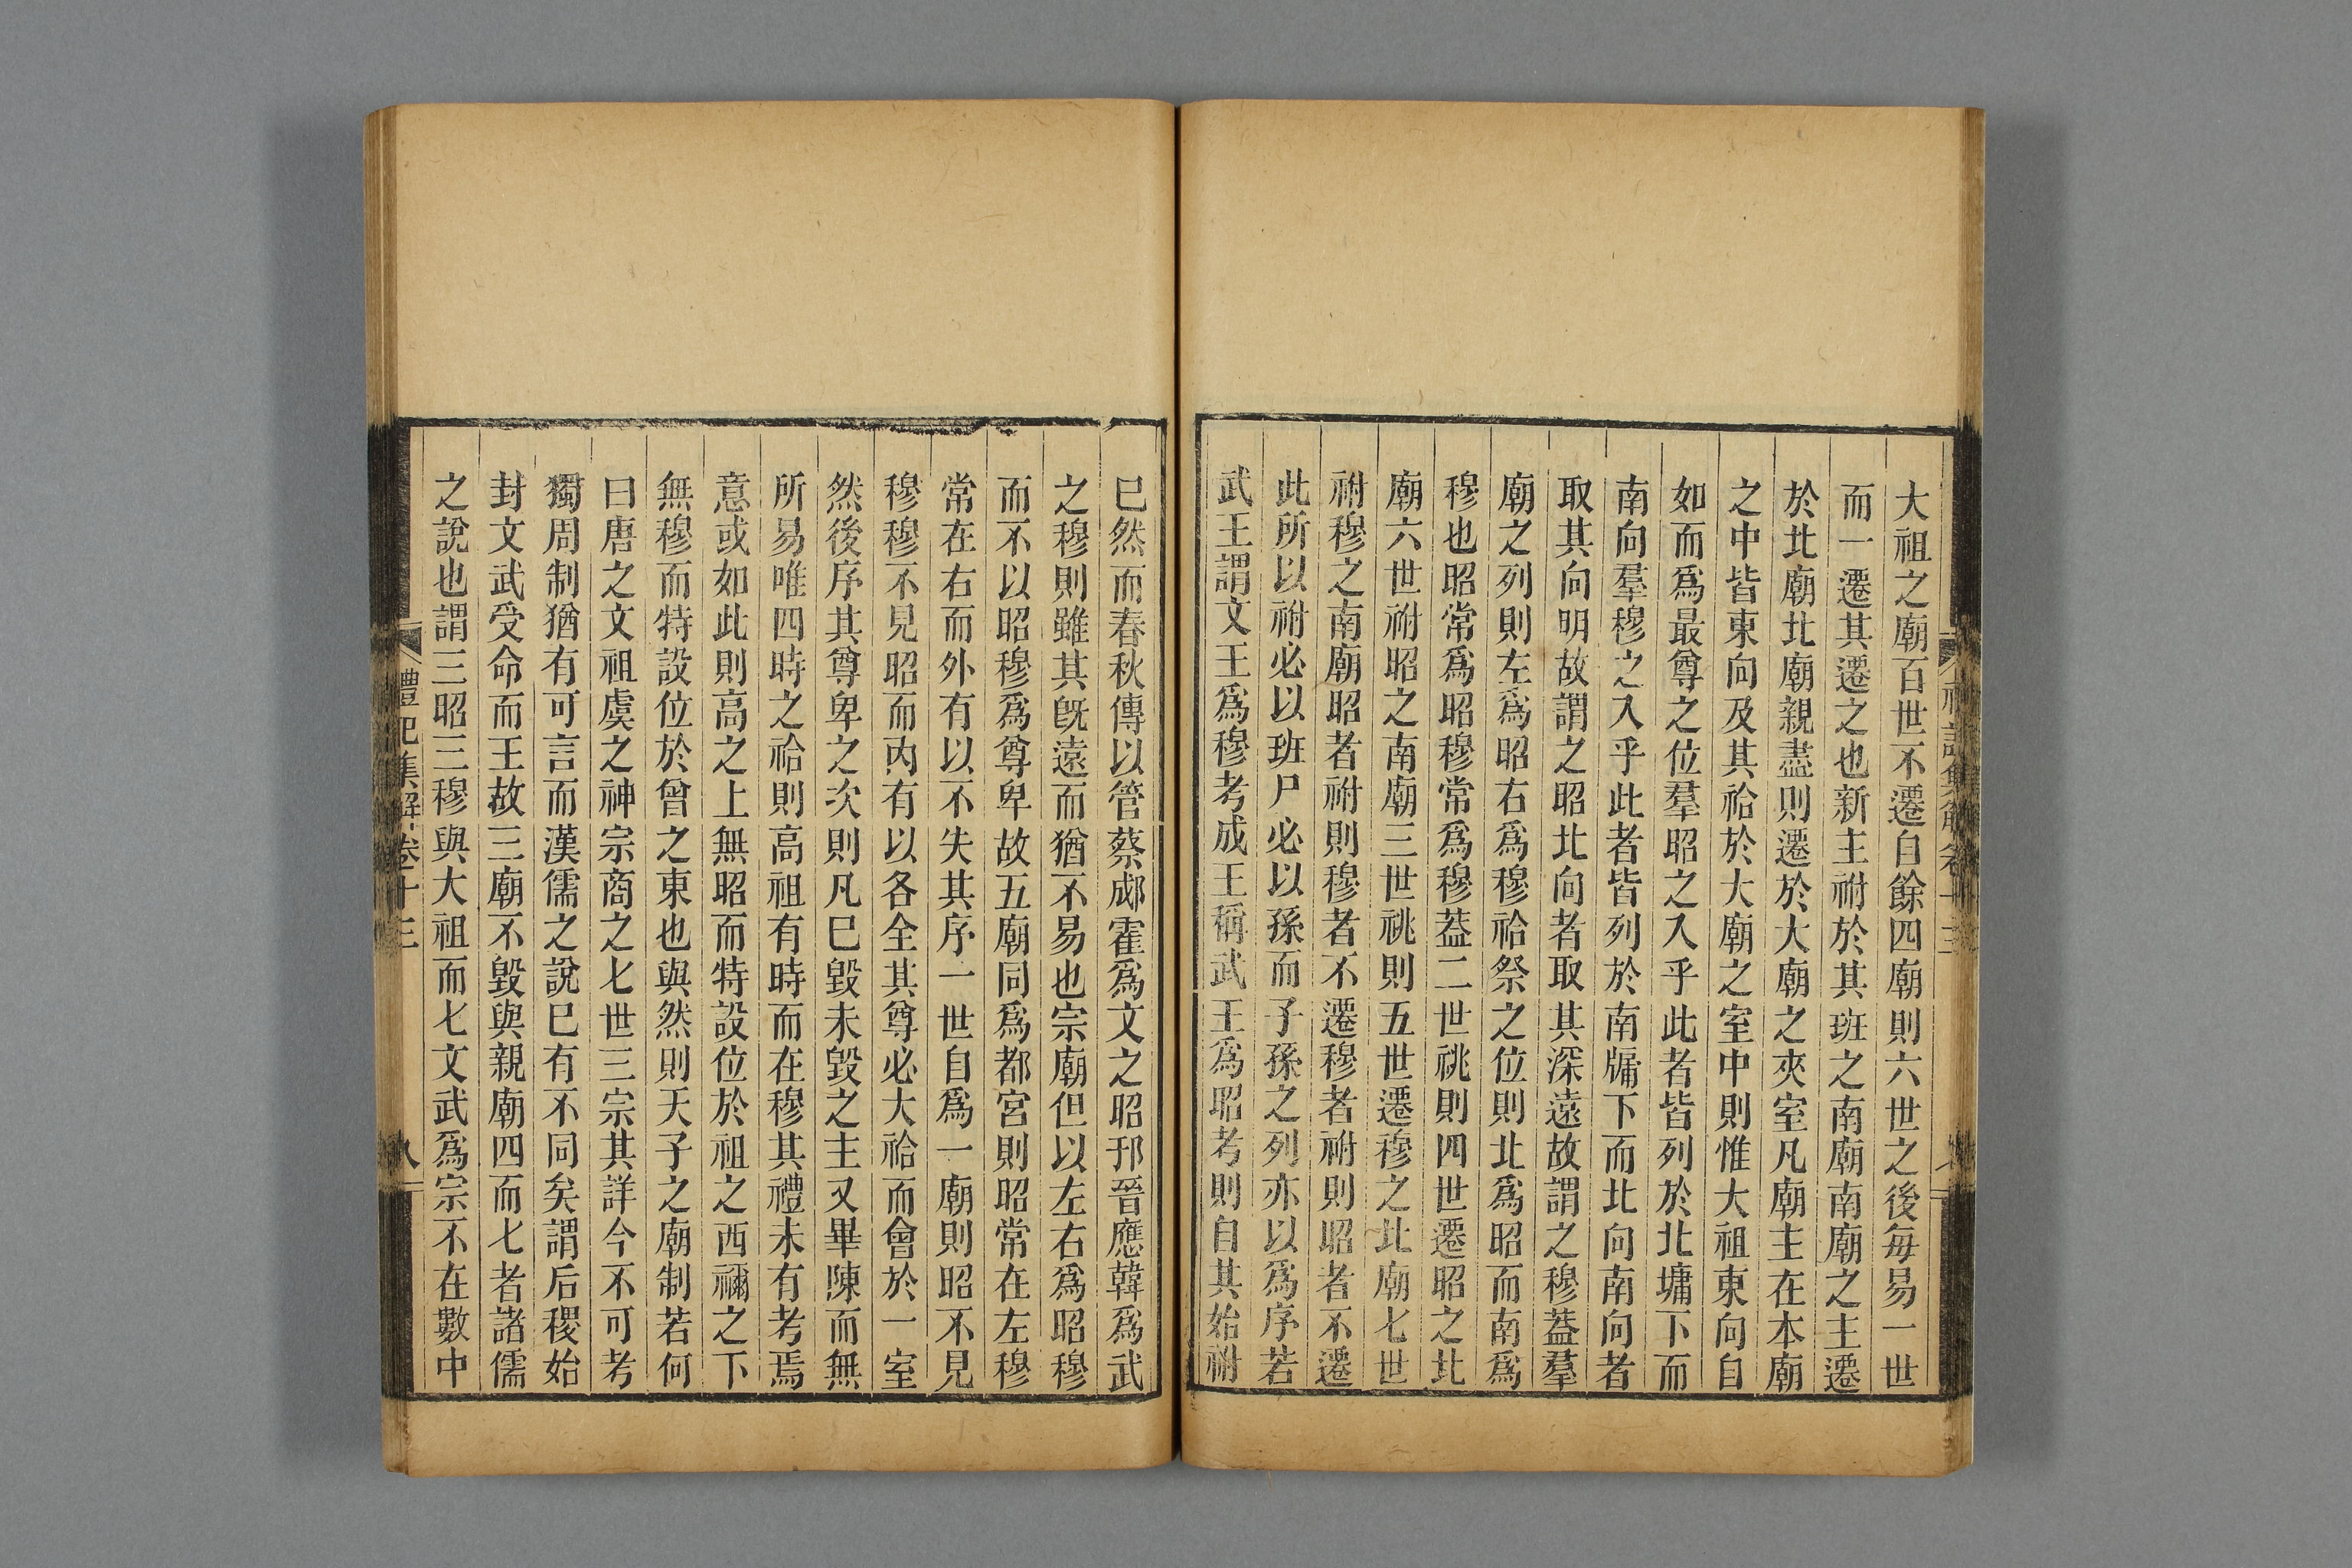 大祖之廟百世不遷自餘四廟則六世之後每易一世
而一遷其遷之也新主祔於其班之南廟南廟之主遷
於北廟北廟親盡則遷於大廟之夾室凡廟主在本廟
之中皆東向及其祫於大廟之室中則惟大祖東向自
如而爲最尊之位羣昭之入乎此者皆列於北墉下而
南向羣穆之入乎此者皆列於南牖下而北向南向者
取其向明故謂之昭北向者取其深遠故謂之穆葢羣
廟之列則左爲昭右爲穆祫祭之位則北爲昭而南爲
穆也昭常爲昭穆常爲穆葢二世祧則四世遷昭之北
廟六世祔昭之南廟三世祧則五世遷穆之北廟七世
祔穆之南廟昭者祔則穆者不遷穆者祔則昭者不遷
此所以祔必以班尸必以孫而子孫之列亦以爲序若
武王謂文王爲穆考成王稱武王爲昭考則自其始祔
巳然而春秋傳以管蔡郕霍爲文之昭邘晉應韓爲武
之穆則雖其旣遠而猶不易也宗廟但以左右爲昭穆
而不以昭穆爲尊卑故五廟同爲都宮則昭常在左穆
常在右而外有以不失其序一世自爲一廟則昭不見
穆穆不見昭而內有以各全其尊必大祫而會於一室
然後序其尊卑之次則凡巳毀未毀之主又畢陳而無
所易唯四時之祫則高祖有時而在穆其禮未有考焉
意或如此則高之上無昭而特設位於祖之西禰之下
無穆而特設位於曾之東也與然則天子之廟制若何
曰唐之文祖虞之神宗商之七世三宗其詳今不可考
獨周制猶有可言而漢儒之說巳有不同矣謂后稷始
封文武受命而王故三廟不毀與親廟四而七者諸儒
之說也謂三昭三穆與大祖而七文武爲宗不在數中
禮記集解卷十三
八